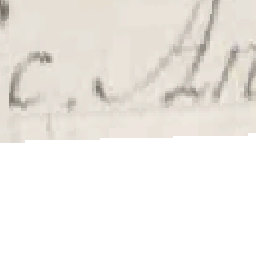 c. An